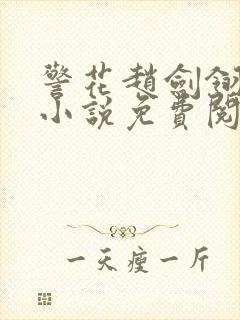 警花趙劍鈅
小說免費閱
一天瘦一斤